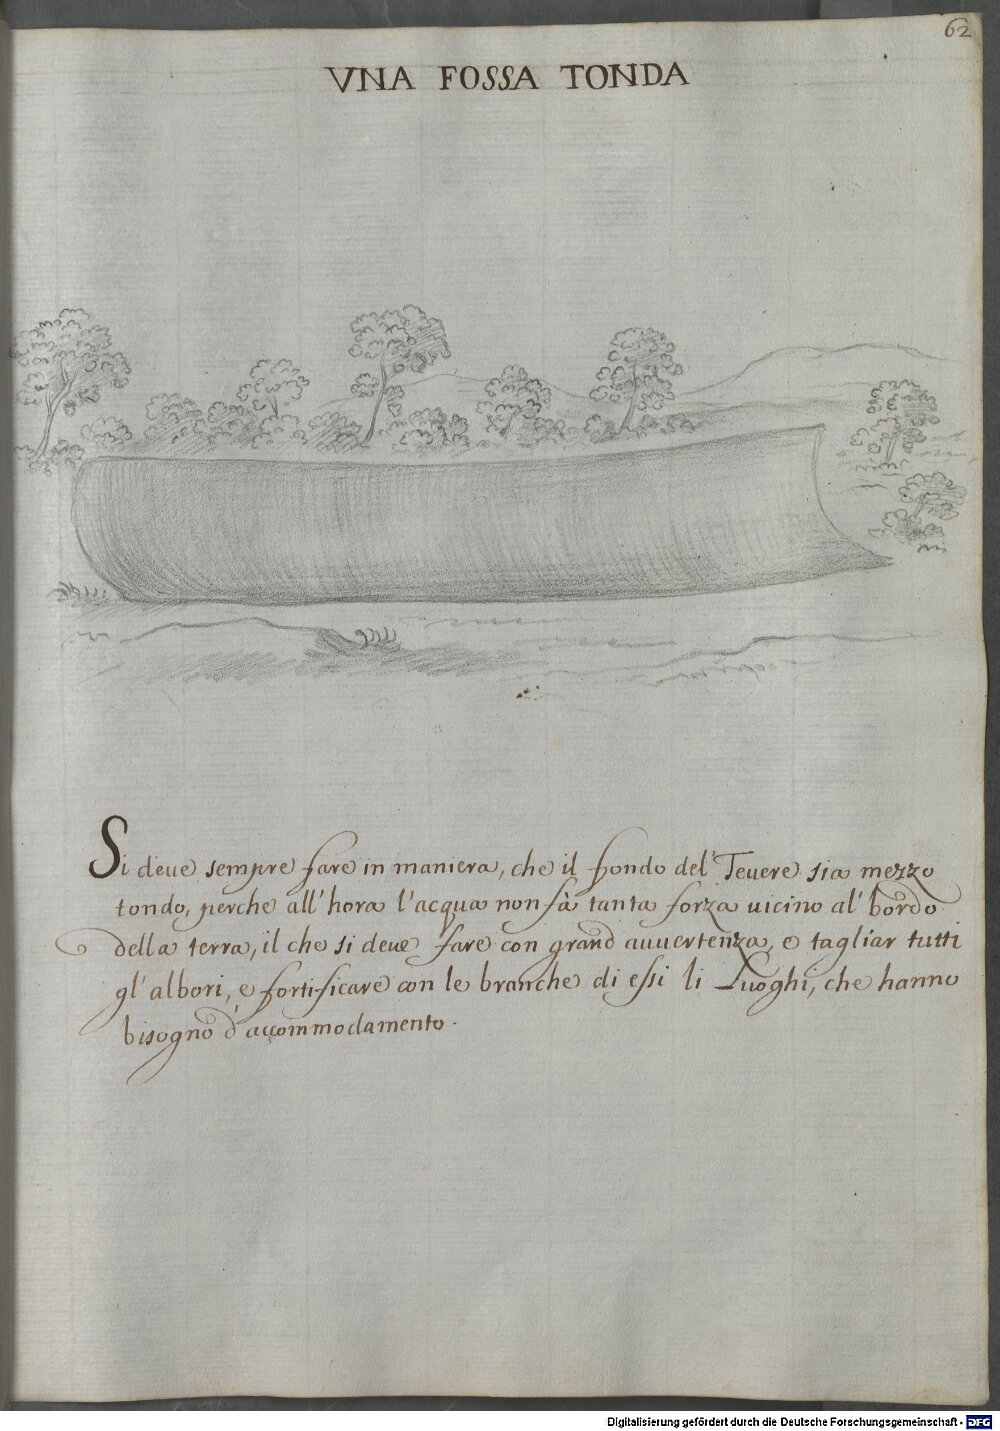 62
VNA FOSSA TONDA
Si deue sempre fare in maniera, che il fondo del' Teuere sia mezzo
tondo, perche all' hora l'acqua non fà tanta forza uicino al' bordo
della terra, il che si deue fare con grand' auuertenza, e tagliar tutti
gl' albori, e fortificare con le branche di essi li Luoghi, che hanno
bisogno d' accommodamento.
Digitalisierung gefördert durch die Deutsche Forschungsgemeinschaft - DFG